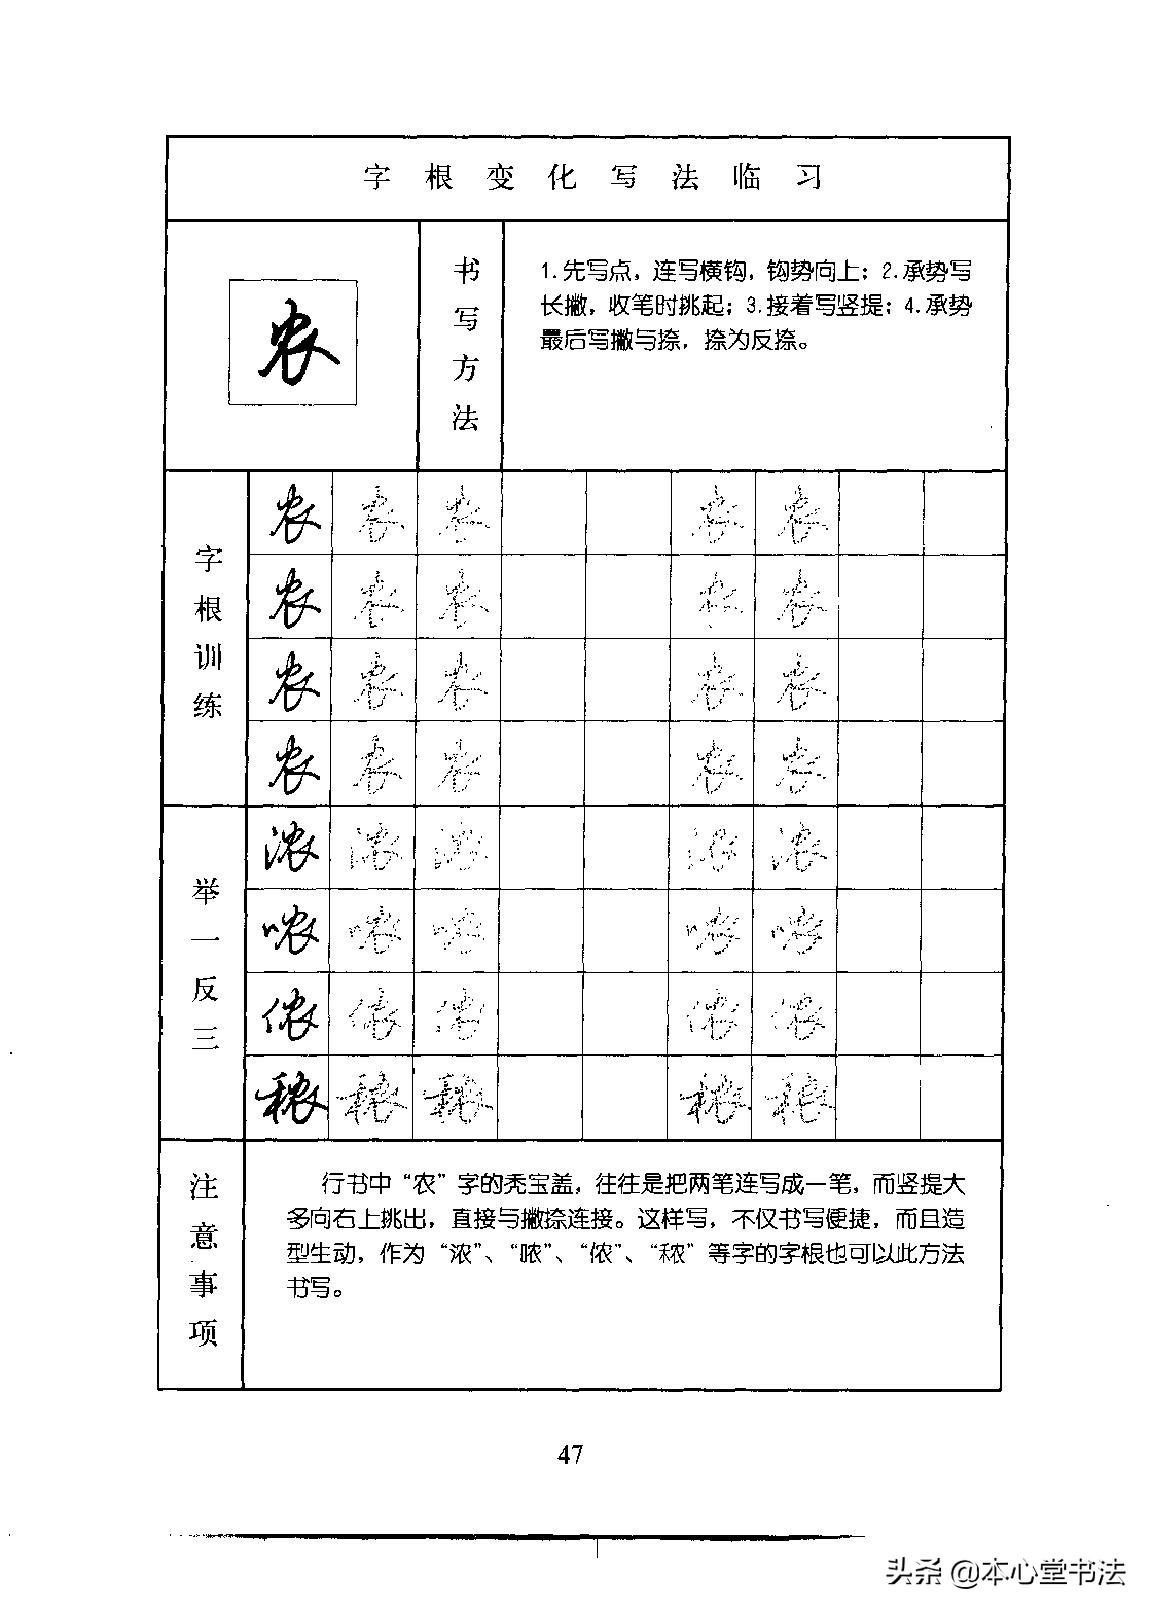 字根变化写法临习
农
书写方法
1.先写点，连写横钩，钩势向上；2.承势写
长撇，收笔时挑起；3.接着写竖提；4.承势
最后写撇与捺，捺为反捺。
字根训练
农农农农农
农农农农农
农农农农农
农农农农农
举一反三
浓浓浓浓浓
哝哝哝哝哝
侬侬侬侬侬
秾秾秾秾秾
注意事项
行书中“农”字的秃宝盖，往往是把两笔连写成一笔，而竖提大
多向右上挑出，直接与撇捺连接。这样写，不仅书写便捷，而且造
型生动，作为“浓”、“哝”、“侬”、“秾”等字的字根也可以此方法
书写。
47
头条 @本心堂书法